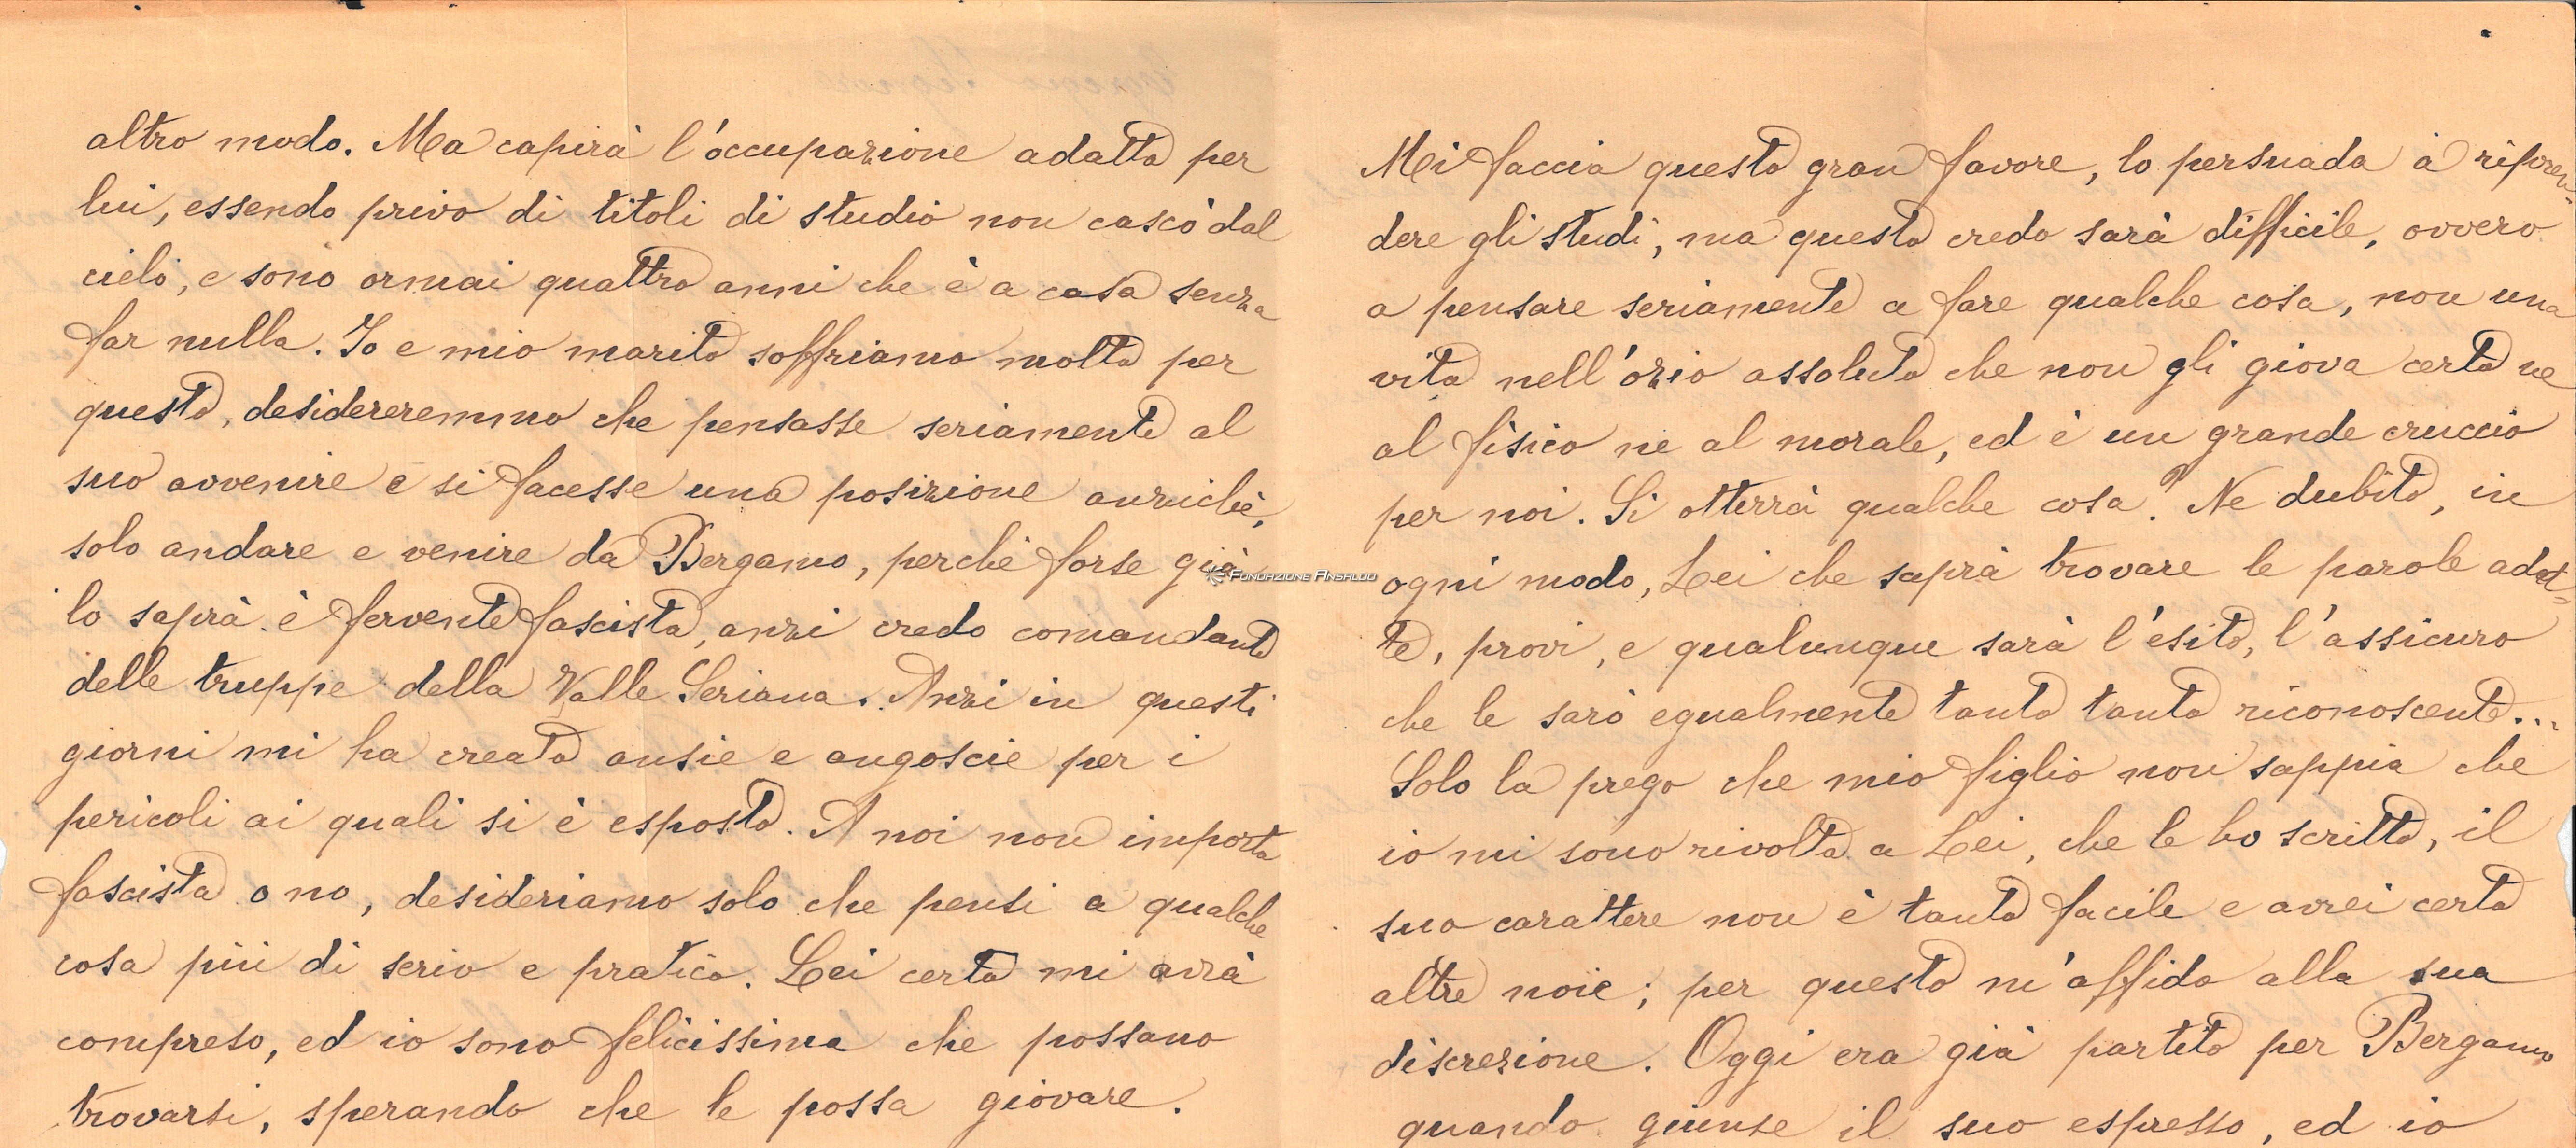 altro modo. Ma capirà l'occupazione adatta per
lui, essendo privo di titoli di studio non cascò dal
cielo, e sono ormai quattro anni che è a casa senza
far nulla. Io e mio marito soffriamo molto per
questo, desidereremmo che pensasse seriamente al
suo avvenire e si facesse una posizione anzichè,
solo andare e venire da Bergamo, perchè forse già
lo saprà è fervente fascista, anzi credo comandante
delle truppe della Valle Seriana. Anzi in questi
giorni mi ha creato ansie e angoscie per i
pericoli ai quali si è esposto. A noi non importa
fascista o no, desideriamo solo che pensi a qualche
cosa più di serio e pratico. Lei certo mi avrà
compreso, ed io sono felicissima che possano
trovarsi, sperando che le possa giovare.
Mi faccia questo gran favore, lo persuada a ripren-
dere gli studi, ma questo credo sarà difficile, ovvero
a pensare seriamente a fare qualche cosa, non una
vita nell'ozio assoluto che non gli giova certo ne
al fisico ne al morale, ed è un grande cruccio
per noi. Si otterrà qualche cosa? Ne dubito, in
ogni modo, Lei che saprà trovare le parole adat-
te, provi, e qualunque sarà l'esito, l'assicuro
che le sarò egualmente tanto tanto riconoscente...
Solo la prego che mio figlio non sappia che
io mi sono rivolta a Lei, che le ho scritto, il
suo carattere non è tanto facile e avrei certo
altre noie; per questo m'affido alla sua
discrezione. Oggi era già partito per Bergamo
quando giunse il suo espresso, ed io
FONDAZIONE ANSALDO